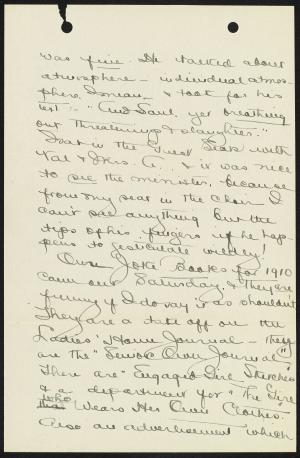 was fine. He talked about
atmosphere - individual atmos-
phere, I mean, & took for his
text:- "And Saul, yet breathing
out threatening & slaughter."
I sat in the guest seats with
Nat & Mrs. G., & it was nice
to see the minister, because
from my seat in the choir I
can't see anything but the
tips of his fingers if he hap-
pens to gesticulate wildly!
Our Joke Books for 1910
came out Saturday, & they are
funny if I do say it as shouldn't.
They are a take off on the
Ladies' Home Journal - they
are the "Seniors' Own Journal"
There are "Engaged Girl Sketches"
& a department for "The Girl
who Wears Her Own Clothes."
Also an advertisement which